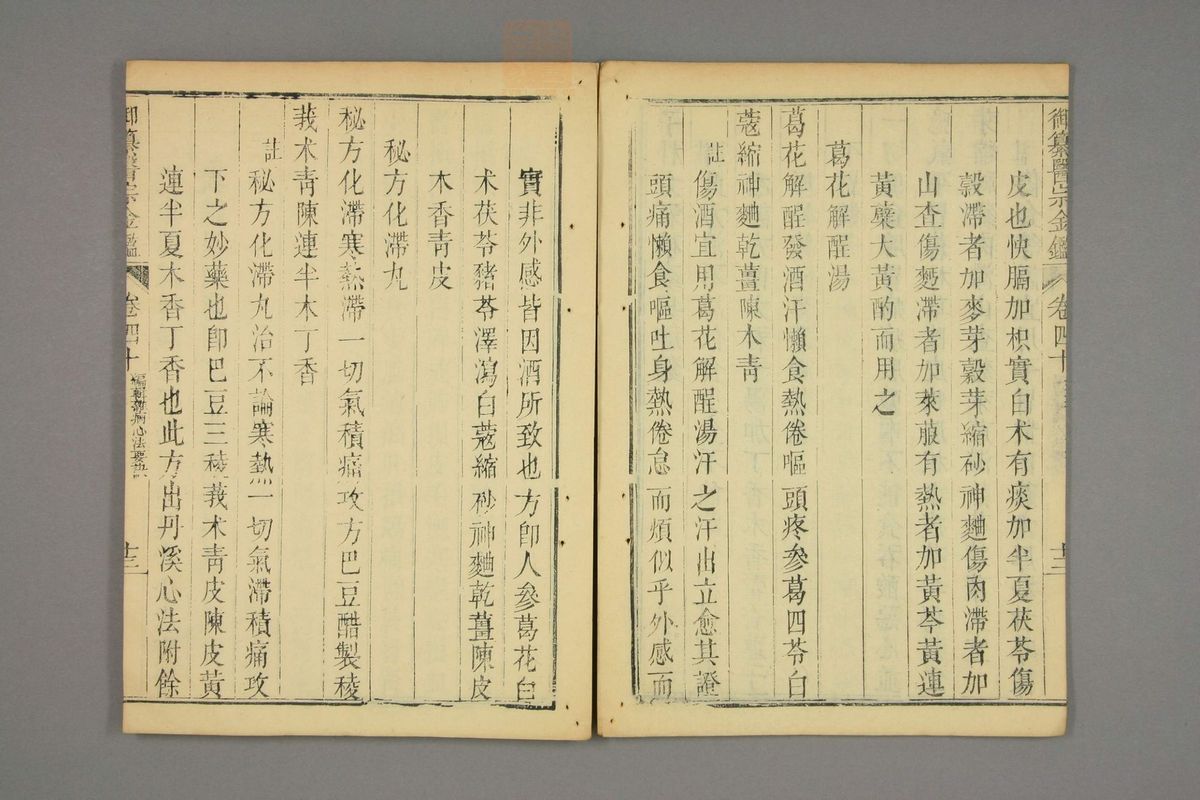 御纂醫宗金鑑 卷四十 十三
皮也快膈加枳實白术有痰加半夏茯苓傷
穀滯者加麥芽穀芽縮砂神麯傷肉滯者加
山查傷麫滯者加萊菔有熱者加黃芩黃連
黃蘗大黃酌而用之
葛花解酲湯
葛花解酲發酒汗懶食熱倦嘔頭疼參葛四苓白
蔻縮神麯乾薑陳木靑
註傷酒宜用葛花解酲湯汗之汗出立愈其證
頭痛懶食嘔吐身熱倦怠而煩似乎外感而
實非外感皆因酒所致也方卽人參葛花白
术茯苓豬苓澤瀉白蔻縮砂神麯乾薑陳皮
木香靑皮
秘方化滯丸
秘方化滯寒熱滯一切氣積痛攻方巴豆醋製稜
莪术靑陳連半木丁香
註秘方化滯丸治不論寒熱一切氣滯積痛攻
下之妙藥也卽巴豆三稜莪术靑皮陳皮黃
連半夏木香丁香也此方出丹溪心法附餘
御纂醫宗金鑑 卷四十 編輯雜病心法要訣 十三